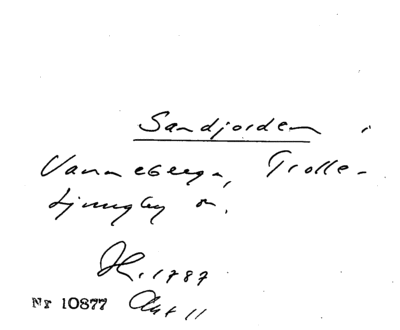 Sandjorden i
Vanneberga, Trolle-
Ljungby sn.
H. 1787
Nr 10877 Akt 11